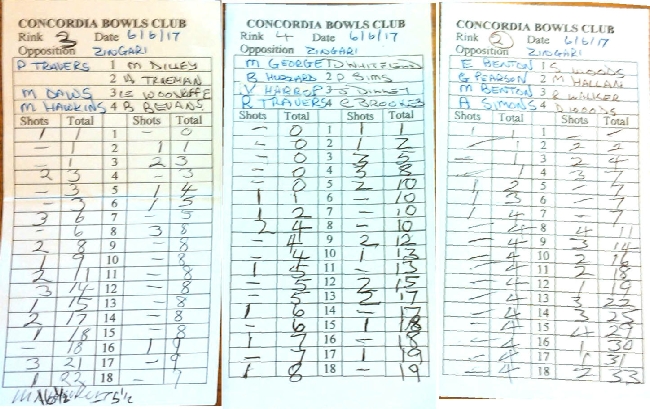 CONCORDIA BOWLS CLUB
Rink 3 Date 6/6/17
Opposition ZINGARI
P TRAVERS 1 M DILLEY
2 A TRUEMAN
M DAWS 3
M HAWKINS 4 B BEVANS
Shots Total Shots Total
1 1 1 - 0
- 1 2 1 1
- 1 3 2 3
2 3 4 - 3
- 3 5 1 4
- 3 6 1 5
3 6 7 - 5
- 6 8 3 8
2 8 9 - 8
1 9 10 - 8
2 11 11 - 8
3 14 12 - 8
1 15 13 - 8
2 17 14 - 8
1 18 15 - 8
- 18 16 1 9
3 21 17 - 9
1 22 18 -
CONCORDIA BOWLS CLUB
Rink 4 Date 6/6/17
Opposition ZINGARI
M GEORGE 1 D WHITFIELD
B 2 P SIMS
V HARROP 3
R TRAVERS 4 C BROOKES
Shots Total Shots Total
- 0 1 1 1
- 0 2 1 2
- 0 3 3 5
- 0 4 3 8
- 0 5 2 10
1 1 6 - 10
1 2 7 - 10
2 4 8 - 10
- 4 9 2 12
- 4 10 1 13
1 5 11 - 13
- 5 12 2 15
- 5 13 2 17
1 6 14 - 17
- 6 15 1 18
1 7 16 - 18
- 7 17 1 19
1 8 18 - 19
CONCORDIA BOWLS CLUB
Rink 5 Date 6/6/17
Opposition ZINGARI
E BENTON 1 WOODS
G PEARSON 2 M HALLAN
M BENTON 3 R WALKER
A SIMONS 4 D WOODS
Shots Total Shots Total
1 1 1 - -
- 1 2 2 2
- 1 3 2 4
- 1 4 3 7
1 2 5 - 7
1 3 6 - 7
1 4 7 - 7
- 4 8 4 11
- 4 9 3 14
- 4 10 2 16
- 4 11 2 18
- 4 12 1 19
- 4 13 3 22
- 4 14 3 25
- 4 15 4 29
- 4 16 1 30
- 4 17 1 31
- 4 18 2 33